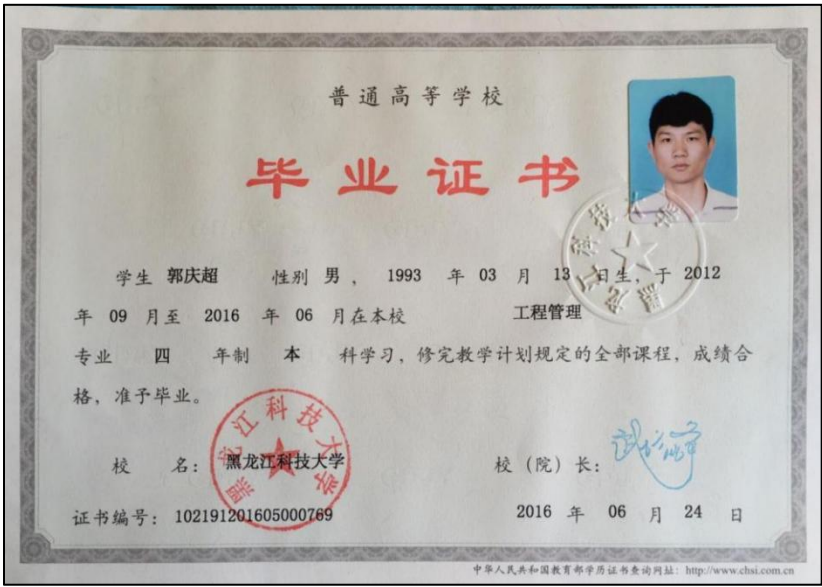 普通高等学校
毕业证书
学生 郭庆超 性别 男 ， 1993 年 03 月 13 日生，于 2012
年 09 月至 2016 年 06 月在本校 工程管理
专业 四 年制 本 科学习，修完教学计划规定的全部课程，成绩合
格，准予毕业。
黑龙江科技大学
黑龙江科技大学
校 名： 黑龙江科技大学
校（院）长：
证书编号： 102191201605000769
2016 年 06 月 24 日
中华人民共和国教育部学历证书查询网址：http://www.chsi.com.cn